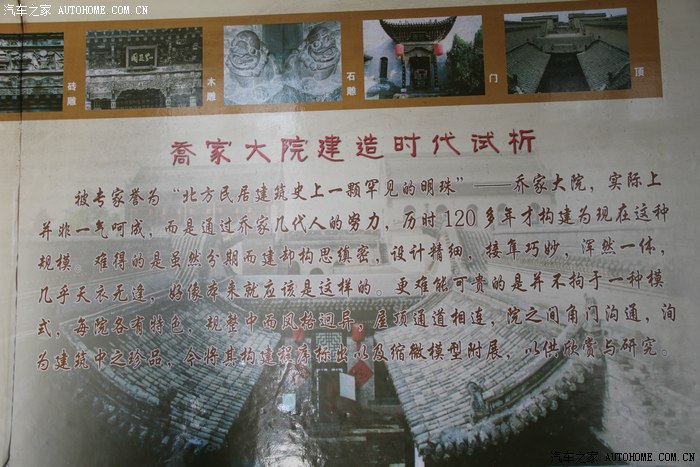 汽车之家 AUTOHOME.COM.CN
砖雕
木雕
石雕
门
顶
喬家大院建造时代试析
被专家誉为“北方民居建筑史上一颗罕见的明珠”——乔家大院，实际上
并非一气呵成，而是通过乔家几代人的努力，历时120多年才构建为现在这种
规模。难得的是虽然分期而建却构思缜密，设计精细，接隼巧妙，浑然一体，
几乎天衣无逢，好像本来就应该是这样的。更难能可贵的是并不拘于一种模
式，每院各有特色，规整中而风格迥异，屋顶通道相连，院之间角门沟通，洵
为建筑中之珍品，今将其构建程序标出以及缩微模型附展，以供欣赏与研究。
汽车之家 AUTOHOME.COM.CN